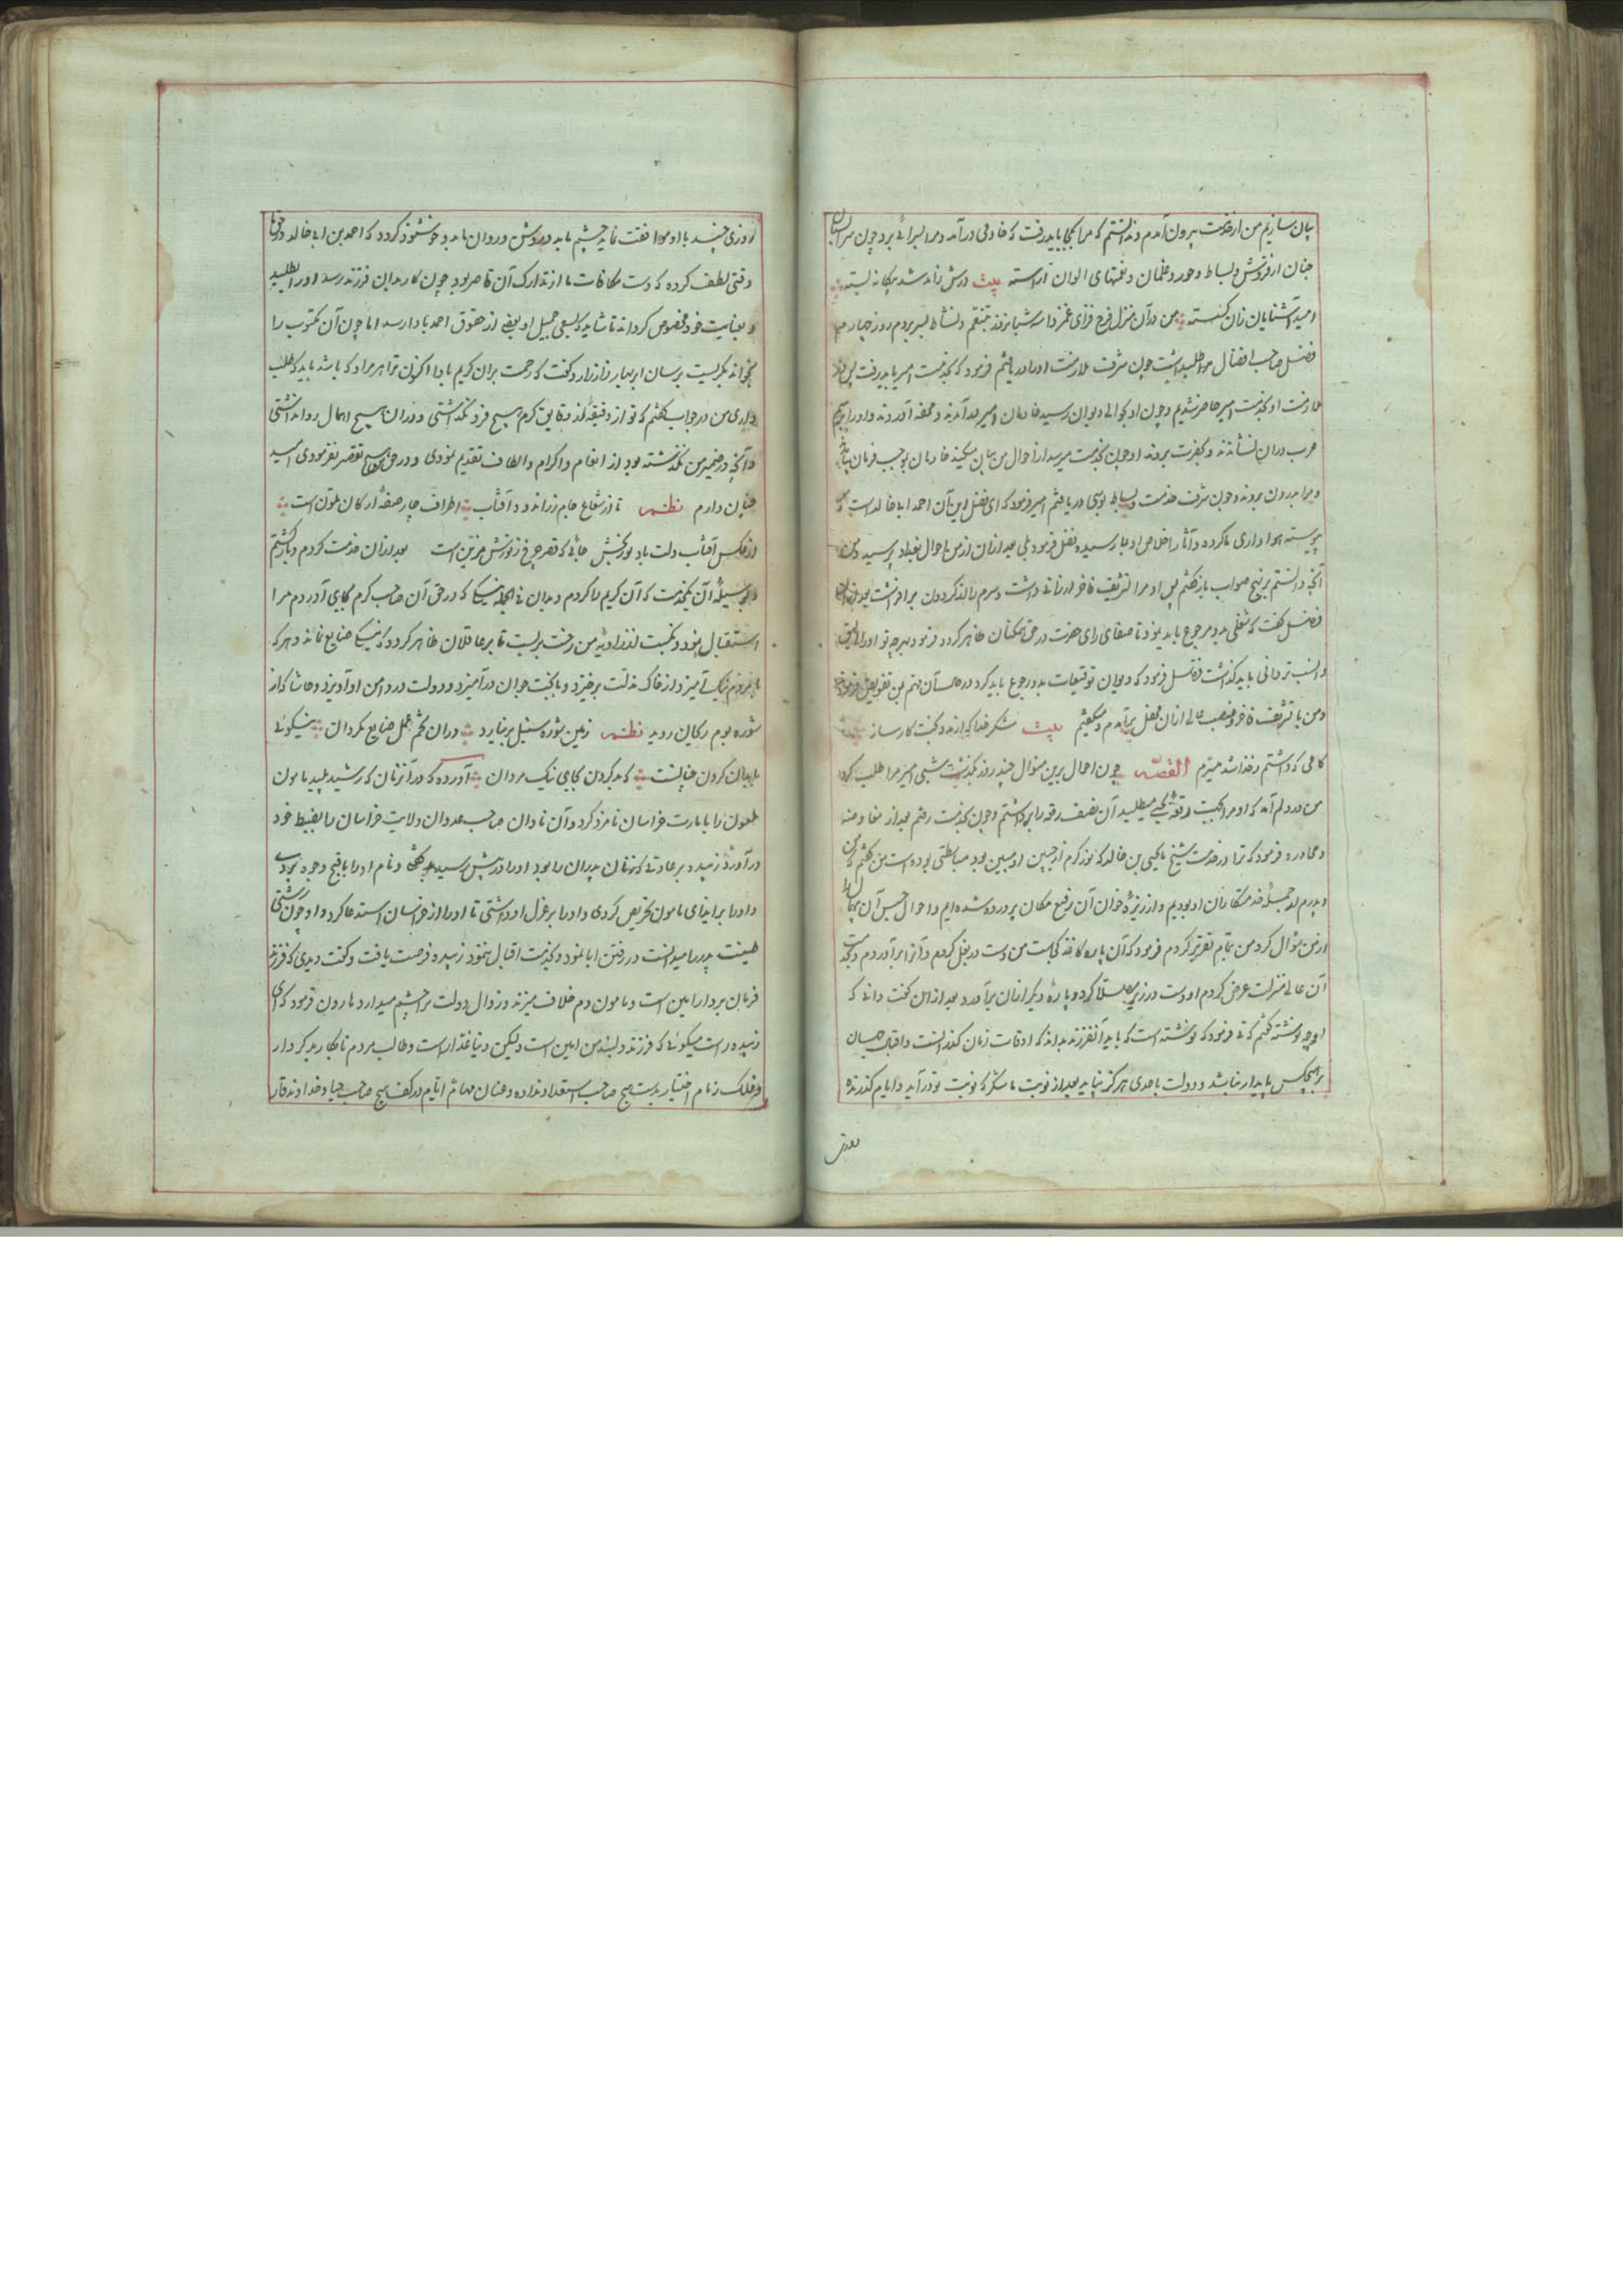 بیان سازیم من از خدمت بیرون آمدم و ندانستم که مرا کجا باید رفت که خادمی درآمد و مرا بسرائی برد چون
جنان از فروش و بساط و حور و غلمان و نعمتهای الوان آراسته بیت درش زامد شد بیگانه بسته
امید آشنایان زان گسسته من در آن منزل فرح فزای غمزدا سه شبانروز بتنعم و نشاط بسر بردم روز چهارم
فضل صاحب افضال مرا طلب داشت چون شرف ملازمت او دریافتم فرمود که بخدمت امیر باید رفت پس
ملازمت او بخدمت امیر حاضر شدیم و چون او بحوالی دیوان رسید خادمان امیر برآمدند و محفه آوردند و او را
در ان نشاندند و بحضرت بردند او چون بخدمت میرسد از احوال من بیان میکند خادمان بموجب فرمان
و مرا بدرون بردند و چون شرف خدمت و بساط بوسی دریافتم امیر فرمود که ای فضل این آن احمد ابی خالد است که
پیوسته هواداری ما کرده و آثار اخلاص او بما رسیده فضل فرمود بلی بعد ازان از من احوال بغداد پرسید و من
آنچه دانستم بر نهج صواب باز گفتم پس او مرا تشریف فاخر ارزانی داشت و سرم را از گردون برافراشت
فضل گفت که شغلی بدو مرجوع باید نمود تا صفای رای حضرت در حق همگنان ظاهر گردد فرمود هرچه تو او را لایق
و انسب تر دانی باید گذاشت فضل فرمود که دیوان توقیعات بدو رجوع باید کرد در همان مهم بمن تفویض فرمود
و من با تشریف فاخر و منصب عالی ازان محفل برآمدم و میگفتم بیت شکر خدا که از مدد بخت کارساز
کامی که داشتم ز خدا شد میسرم القصه چون احوال برین منوال چند روز بگذشت شبی امیر مرا طلب کرد
من در دلم آمد که او مرا بجهت رقعه یحیی میطلبد آن نصف رقعه را برداشتم و چون بخدمت رفتم بعد از مفاوضه
و محاوره فرمود که ترا در خدمت شیخ ما یحیی بن خالد که نور کرم از جبین او مبین بود مباسطتی بوده است من گفتم که من
و پدرم از جمله خدمتکاران او بودیم و از ریزهٔ خوان آن رفیع مکان پرورده شده ایم و احوال حبس آن
از من سؤال کرد من بتمام تقریر کردم فرمود که آن پاره کاغذ کجاست من دست در بغل کردم و آنرا برآوردم و بخدمت
آن عالی منزلت عرض کردم او دست در زیر مصلا کرد و پارهٔ دیگر ازان برآورد بعد ازان گفت دانی که
او چه نوشته گفتم که نی فرمود که نوشته است که باید آنفرزند بداند که اوقات زمان گذرانست و اقبال جهان
بر هیچکس پایدار نباشد و دولت با احدی هرگز نپاید بعد از نوبت ما مگر که نوبت تو درآید و ایام گذرنده
روزی
روزی چند با او موافقت نماید چشم ما بدو روشن و روان ما بدو خوشنود گردد که احمد بن ابی خالد در حق ما
وقتی لطف کرده که دست مکافات ما از تدارک آن قاصر بود چون کار بدان فرزند رسد او را طلبیده
و بعنایت خود مخصوص گرداند تا شاید که بسعی جمیل او بعضی از حقوق احمد بادا رسد اما چون آن مکتوب را
بخواند بگریست برسان ابر بهار زار زار و گفت که رحمت بران کریم باد اکنون ترا هر مراد که باشد باید که طلب
داری من در جواب گفتم که تو از دقیقه از دقایق کرم هیچ فرو نگذاشتی و دران هیچ اهمال روا نداشتی
و آنچه در ضمیر من نگذشته بود از انعام و اکرام و الطاف تقدیم نمودی و در حق ما هیچ تقصیر نفرمودی امید
چنان دارم نظم تا از شعاع جام زراندود آفتاب اطراف چار صفهٔ ارکان ملون است
از عکس آفتاب دلت باد نور بخش جائی که قصر چرخ ز نورش مزین است بعد ازان خدمت کردم و بازگشتم
و بوسیلهٔ آن یکخدمت که آن کریم را کردم و بدان فی الجمله نیکی که در حق آن صاحب کرم بجای آوردم مرا
استقبال نمود و نکبت از زاویهٔ من رخت بربست تا بر عاقلان ظاهر گردد که نیکی ضایع نماند و هر که
با مردم نیک آمیزد از خاک مذلت برخیزد و با بخت جوان درآمیزد و دولت در دامن او آویزد و حاشا که از
شوره بوم ریحان روید نظم زمین شوره سنبل برنیارد دران تخم عمل ضایع مگردان نیکوئی
با بدان کردن چنانست که بد کردن بجای نیک مردان آورده که در آنزمان که رشید پلید مامون
ملعون را بامارت خراسان نامزد کرد و آن نادان صاحب عدوان ولایت خراسان را بضبط خود
درآورد زبیده بر عادتی که زنان پدران را بود او را در پیش رسید بد گفتی و نام او را باقبح وجوه بردی
و او را بر ایذای مامون تحریص کردی و او را بر عزل او داشتی تا او را از خراسان استدعا کرد و او چون زشتی
طینت پدر را میدانست در رفتن ابا نمود و بخدمت اقبال ننمود زبیده فرصت یافت و گفت دیدی که فرزند
فرمان بردار امین است و مامون دم خلاف میزند و زوال دولت تو را چشم میدارد هارون فرمود که ای
زبیده راست میگوئی که فرزند دلبند من امین است ولیکن دنیا غدار است و طالب مردم نابکار بد کردار
و فلک زمام اختیار بدست هیچ صاحب استعداد نداده و عنان مهام ایام در کف هیچ صاحب حیا و خداوند وقار